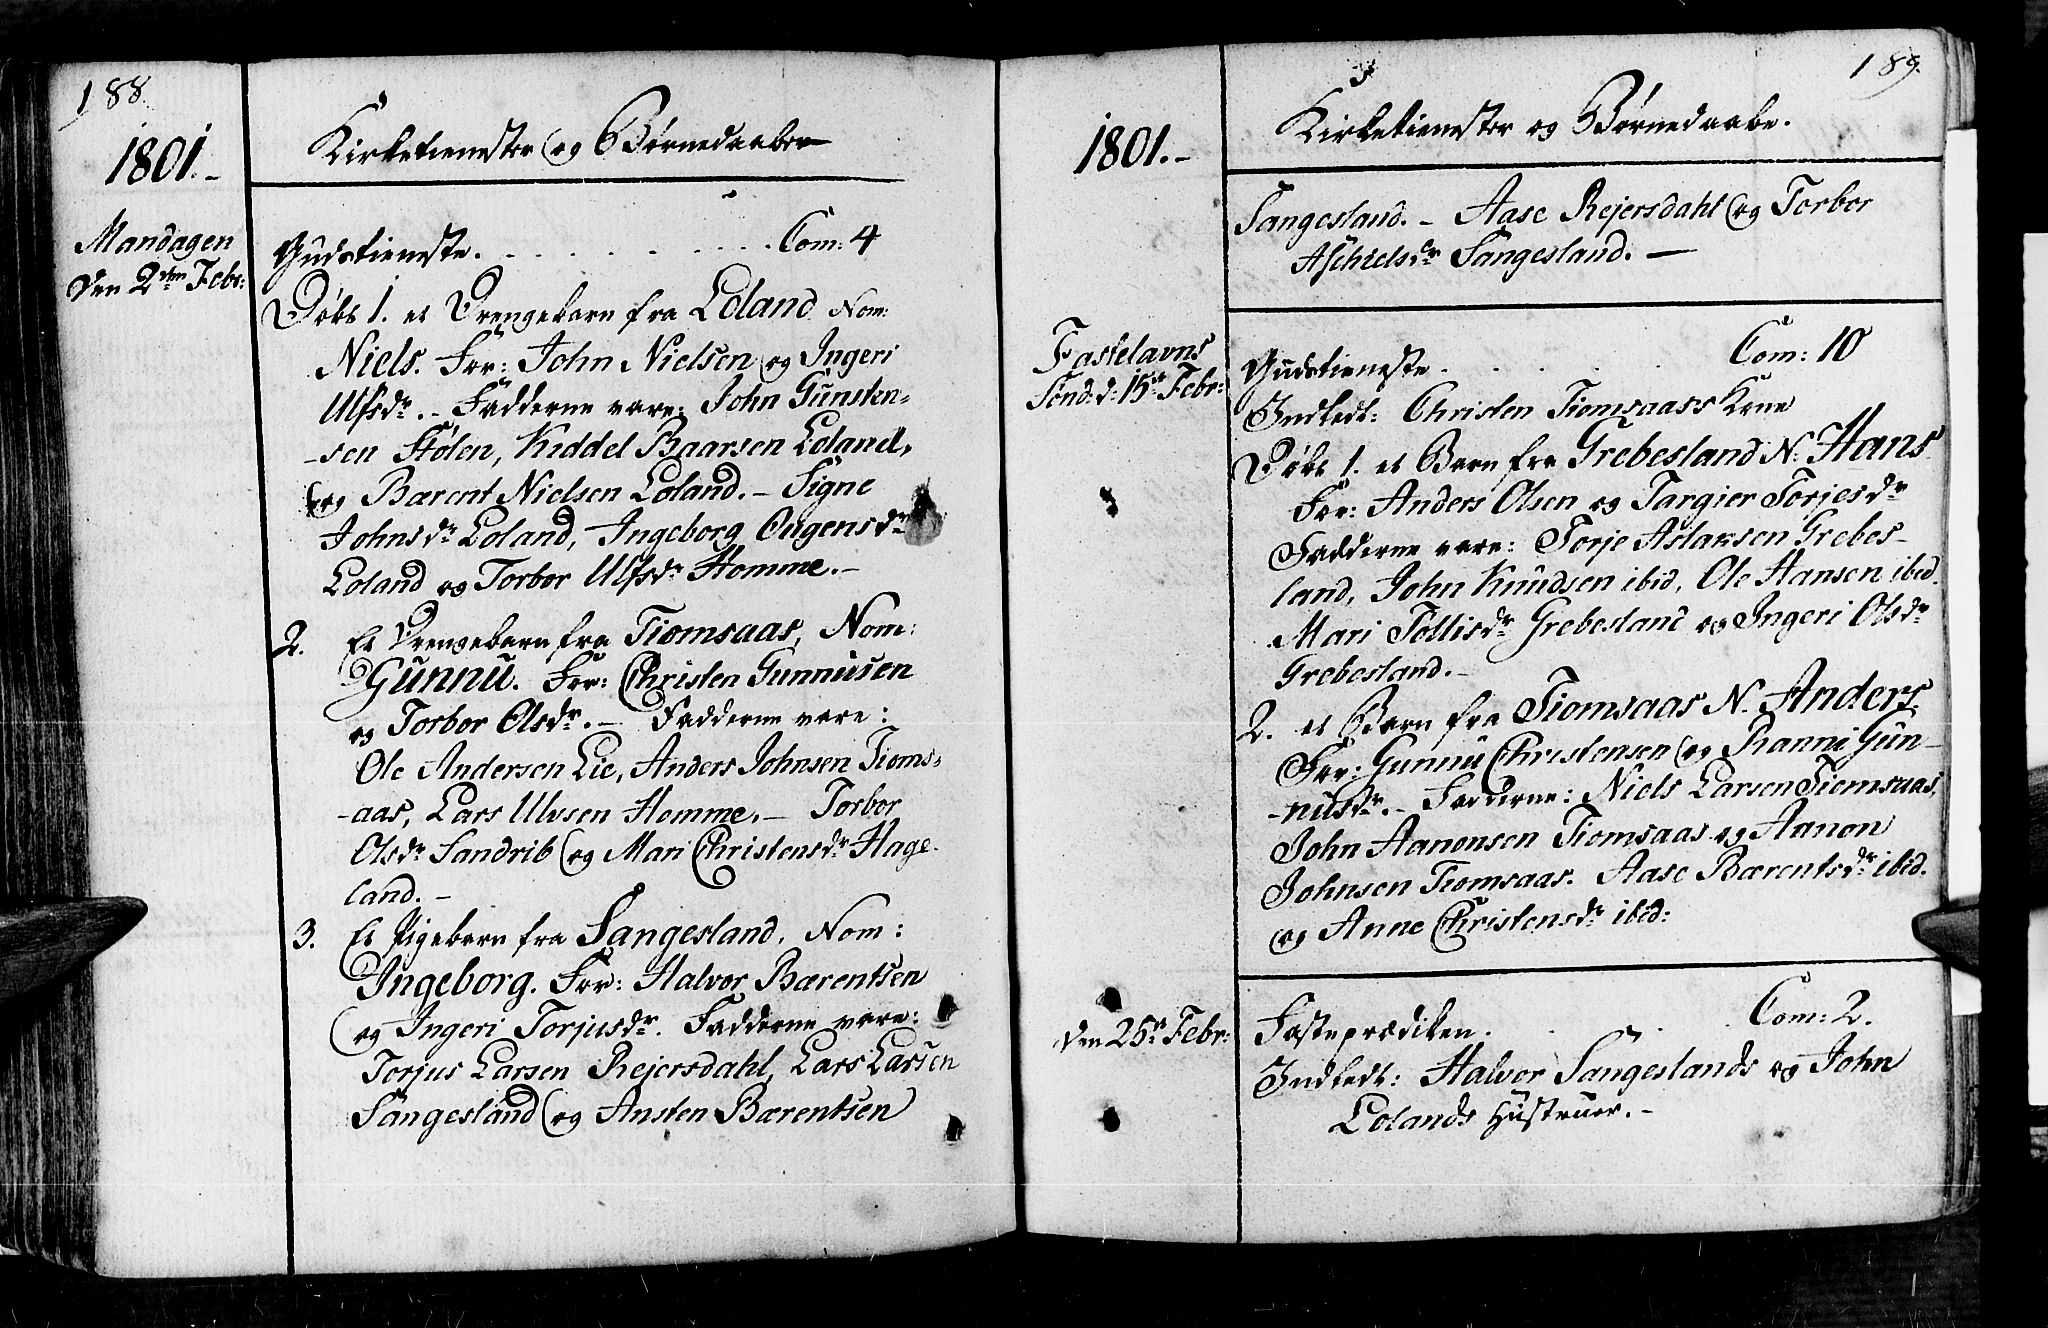 188.
1801.-
Kirketienester og Børnedaaben
Mandagen
den 2den Febr:
Gudstieneste. . . . . . . . Com: 4
Døbt 1. et Drengebarn fra Loland Nom:
Niels. For: John Nielsen og Ingeri
Ulfsdr. - Fadderne vare: John Gunsten-
-sen Stølen, Kiddel Baarsen Loland,
og Bærent Nielsen Loland. - Signe
Johnsdr Loland, Ingeborg Ougensdr
Loland og Torbor Ulfsdr Homme. -
2. Et Drengebarn fra Tiomsaas, Nom:
Gunnu. For: Christen Gunnusen
og Torbor Olsdr. - Fadderne vare:
Ole Andersen Lie, Anders Johnsen Tioms-
-aas, Lars Ulvsen Homme. - Torbor
Olsdr Sandrib og Mari Christensdr Hage-
land. -
3. Et Pigebarn fra Sangesland, Nom:
Ingeborg. For: Halvor Bærentsen
og Ingeri Torjusdr. Fadderne vare:
Torjus Larsen Rejersdahl, Lars Larsen
Sangesland og Ansten Bærentsen
189.
1801.-
Kirketienester og Børnedaabe.
Sangesland. - Aase Rejersdahl og Torbor
Aschielsdr Sangesland. -
Fastelavns
Sønd: d: 15de Febr:
Gudstieneste. . . . . . Com: 10
Indledt: Christen Tiomsaass Kone
Døbt 1. et Barn fra Grebesland N: Hans
For: Anders Olsen og Targier Torjesdr
Fadderne vare: Torje Aslaksen Grebes-
land, John Knudsen ibid, Ole Hansen ibid.
Mari Tollisdr Grebesland og Ingeri Olsdr
Grebesland. -
2. et Barn fra Tiomsaas N. Anders.
For: Gunnu Christensen og Ranni Gun-
-nusdr. - Fadderne: Niels Larsen Tiomsaas,
John Aanonsen Tiomsaas og Aanon
Johnsen Tiomsaas. Aase Bærentsdr ibid.
og Anne Christensdr ibid:
den 25de Febr:
Fasteprædiken. . . . . Com: 2.
Indledt: Halvor Sangeslands og John
Lolands Hustruer. -